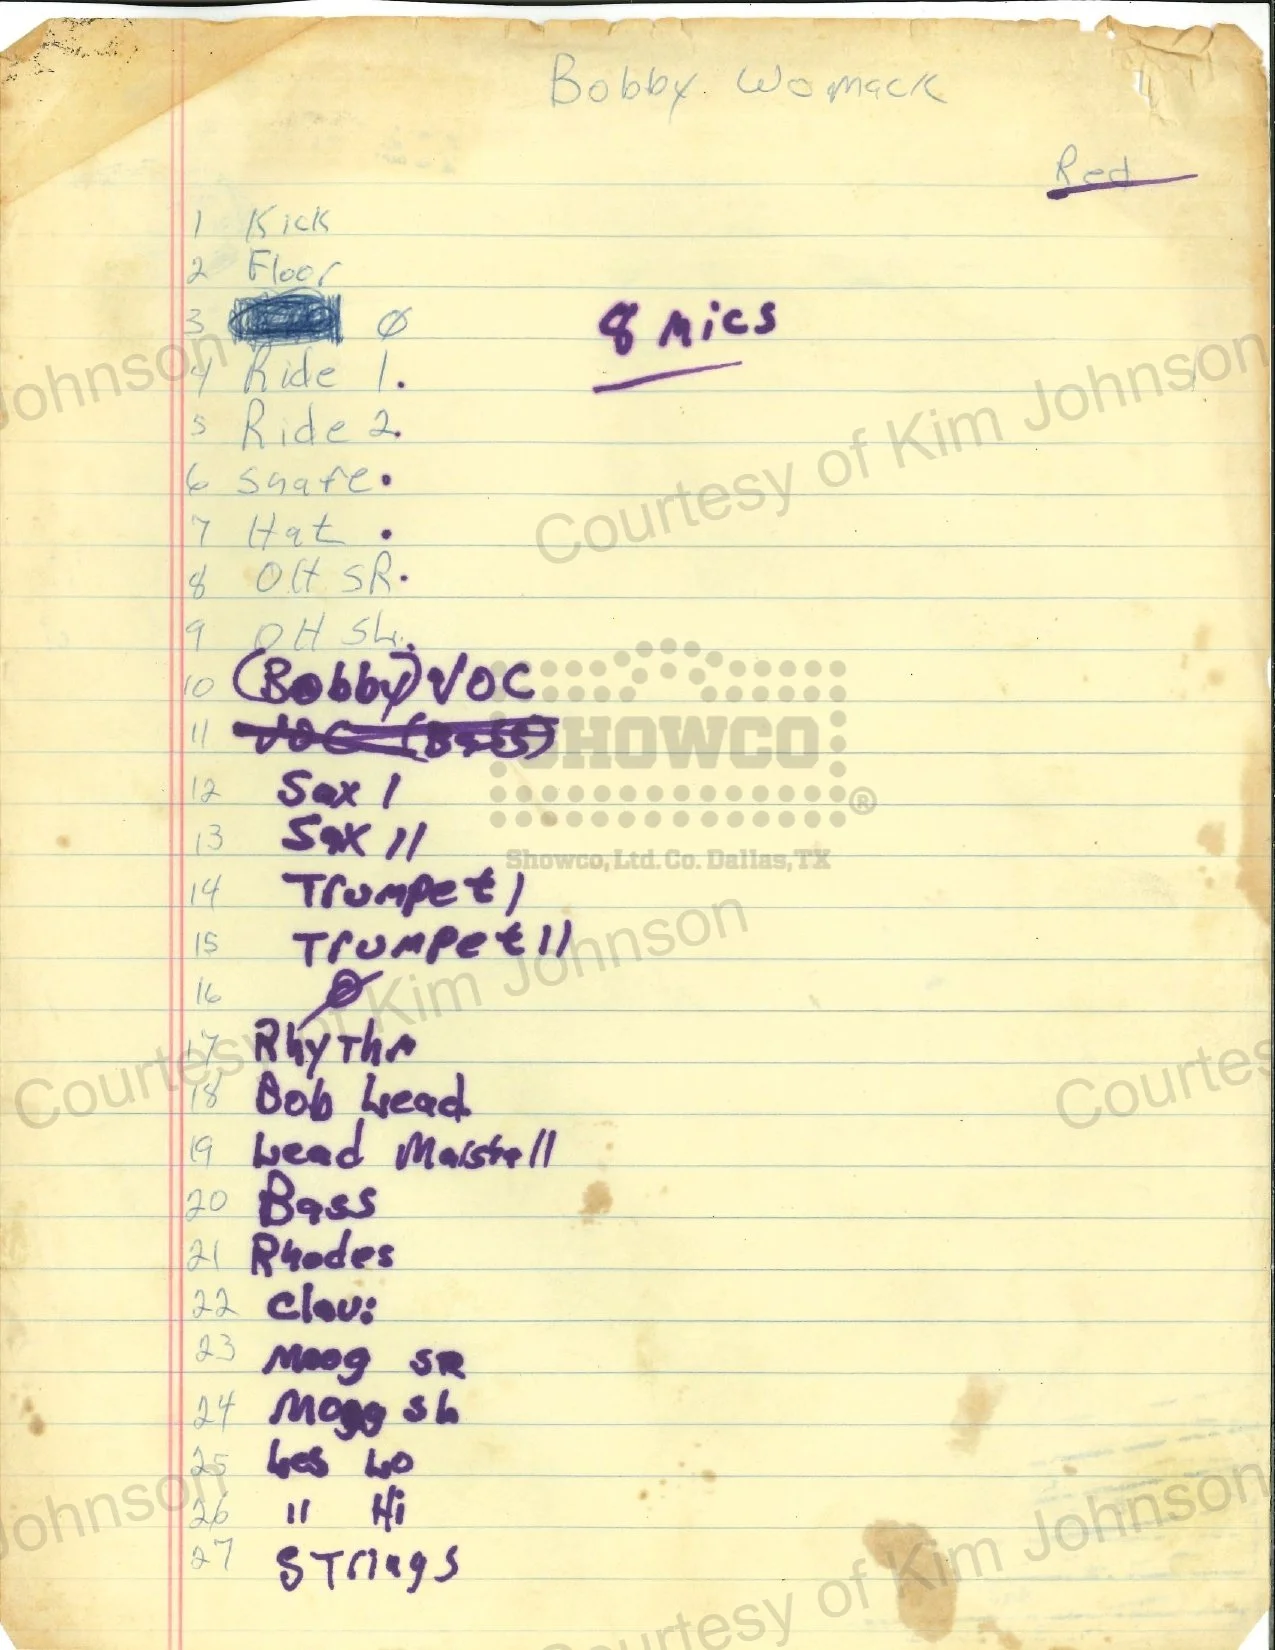 Bobby Womack
Red
1 Kick
2 Floor
3 Ø
8 mics
4 Ride 1.
5 Ride 2.
6 Snare.
7 Hat .
8 OH SR.
9 OH SL.
10 (Bobby) VOC
11 VOC (Bass)
12 Sax I
13 Sax II
14 Trumpet I
15 Trumpet II
16 Ø
17 Rhythm
18 Bob Lead
19 Lead Marshall
20 Bass
21 Rhodes
22 Clavi
23 Moog SR
24 Moog SL
25 Les Lo
26 " Hi
27 Strings
SHOWCO®
Showco, Ltd. Co. Dallas, TX
Johnson
Courtesy of Kim Johnson
Courtesy of Kim Johnson
Courtes
Johnson
Courtesy of Kim Johnson